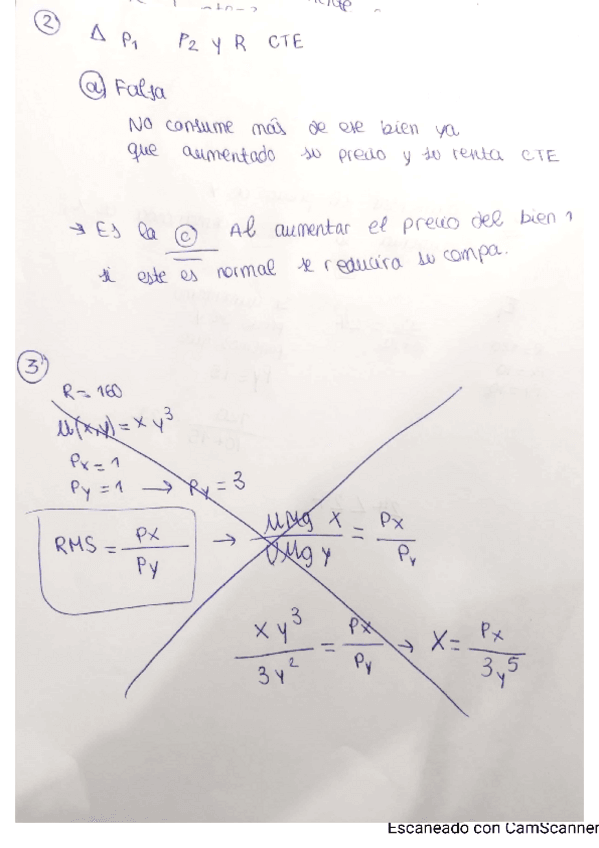 ②
Δ P1 P2 y R CTE
ⓐ Falsa
No consume más de ese bien ya
que aumentado su precio y su renta CTE
→ Es la ⓒ Al aumentar el precio del bien 1
si este es normal se reducira su compa.
③
R = 160
U(x,y) = x y³
Px = 1
Py = 1 → Py = 3
RMS = Px / Py → UMg x / UMg y = Px / Py
x y³ / 3y² = Px / Py → x = Px / 3y⁵
Escaneado con CamScanner